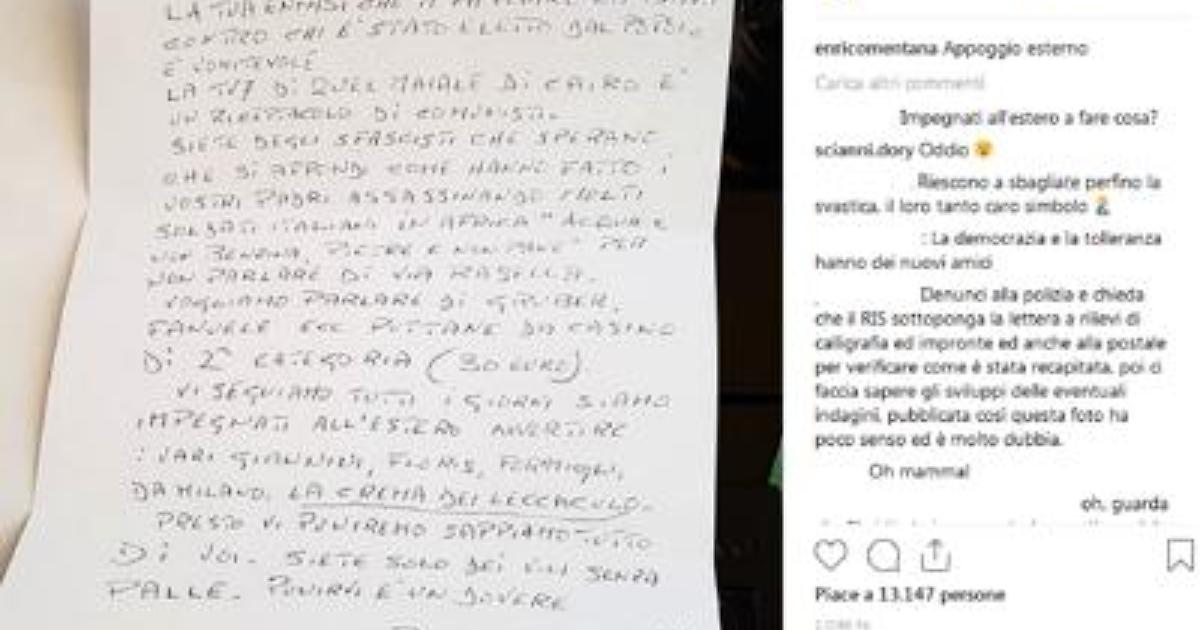 LA TUA ENFASI CHE
CONTRO CHI E' STATO ELETTO DAL
E'
LA TV7 DI QUEL MAIALE DI CAIRO E'
UN RICETTACOLO DI COMUNISTI.
SIETE DEGLI SFASCISTI CHE SPERANO
CHE SI AFFONDI COME HANNO FATTO I
VOSTRI PADRI ASSASSINANDO MOLTI
SOLDATI ITALIANI IN AFRICA "ACQUA E
NON BENZINA, PIETRE E NON PANE" PER
NON PARLARE DI VIA RASELLA.
VOGLIAMO PARLARE DI GRUBER,
PANELLA ECC PUTTANE DA CASINO
DI 2^ CATEGORIA (30 EURO).
VI SEGUIAMO TUTTI I GIORNI SIAMO
IMPEGNATI ALL'ESTERO AVVERTIRE
I VARI GIANNINI, FLORIS, FORMIGLI,
DA MILANO, LA CREMA DEI LECCACULO.
PRESTO VI PUNIREMO SAPPIAMO TUTTO
DI VOI. SIETE SOLO DEI VILI SENZA
PALLE. PUNIRVI E' UN DOVERE
enricomentana Appoggio esterno
Carica altri commenti
Impegnati all'estero a fare cosa?
scianni.dory Oddio 😮
Riescono a sbagliare perfino la
svastica, il loro tanto caro simbolo
: La democrazia e la tolleranza
hanno dei nuovi amici
Denunci alla polizia e chieda
che il RIS sottoponga la lettera a rilievi di
calligrafia ed impronte ed anche alla postale
per verificare come è stata recapitata, poi ci
faccia sapere gli sviluppi delle eventuali
indagini, pubblicata così questa foto ha
poco senso ed è molto dubbia.
Oh mamma!
oh, guarda
Piace a 13.147 persone